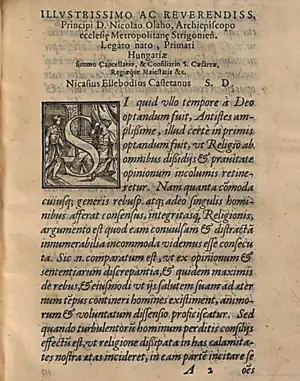 ILLVSTRISSIMO AC REVERENDISS.
Principi D. Nicolao Olaho, Archiepiscopo
ecclesię Metropolitanę Strigonieñ.
Legato nato, Primati
Hungariæ
summo Cancellario, & Consiliario S. Cæsareæ,
Regiæque Maiestatis &c.
Nicasius Ellebodius Casletanus S. D.
SI quid vllo tempore à Deo
optandum fuit, Antistes am-
plissime, illud certè in primis
optandum fuit, vt Religio ab
omnibus dissidijs & prauitate
opinionum incolumis retine-
retur. Nam quanta cõmoda
cuiusq; generis rebusp. atq; adeo singulis homi-
nibus afferat consensus, integritasq; Religionis,
argumento est quod eam conuulsam & distractã
innumerabilia incommoda widemus esse consecu-
ta. Sic .n. comparatum est, vt ex opinionum &
sententiarum discrepantia, & quidem maximis
de rebus, & eiusmodi vt ijs salutem suam ad æter-
num tẽpus contineri homines existiment, animo-
rum & voluntatum dissensio proficiscatur. Sed
quando turbulentorũ hominum perditis consilijs
effectũ est, vt religione dissipata in has calamita-
tes nostra ætas incideret, in eam partẽ incitare se
A 2 oẽs